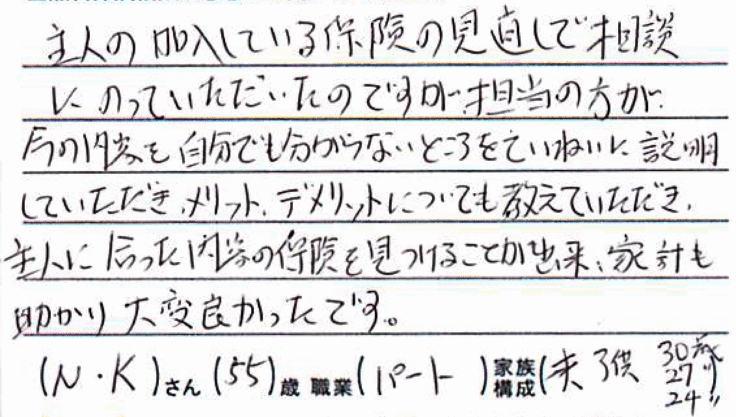 主人の加入している保険の見直しで相談
にのっていただいたのですが、担当の方が、
今の内容を自分でも分からないところをていねいに説明
していただき、メリット、デメリットについても教えていただき、
主人に合った内容の保険を見つけることが出来、家計も
助かり大変良かったです。
(N・K)さん(55)歳 職業(パート)家族構成(夫 子供 30歳 27〃 24〃)